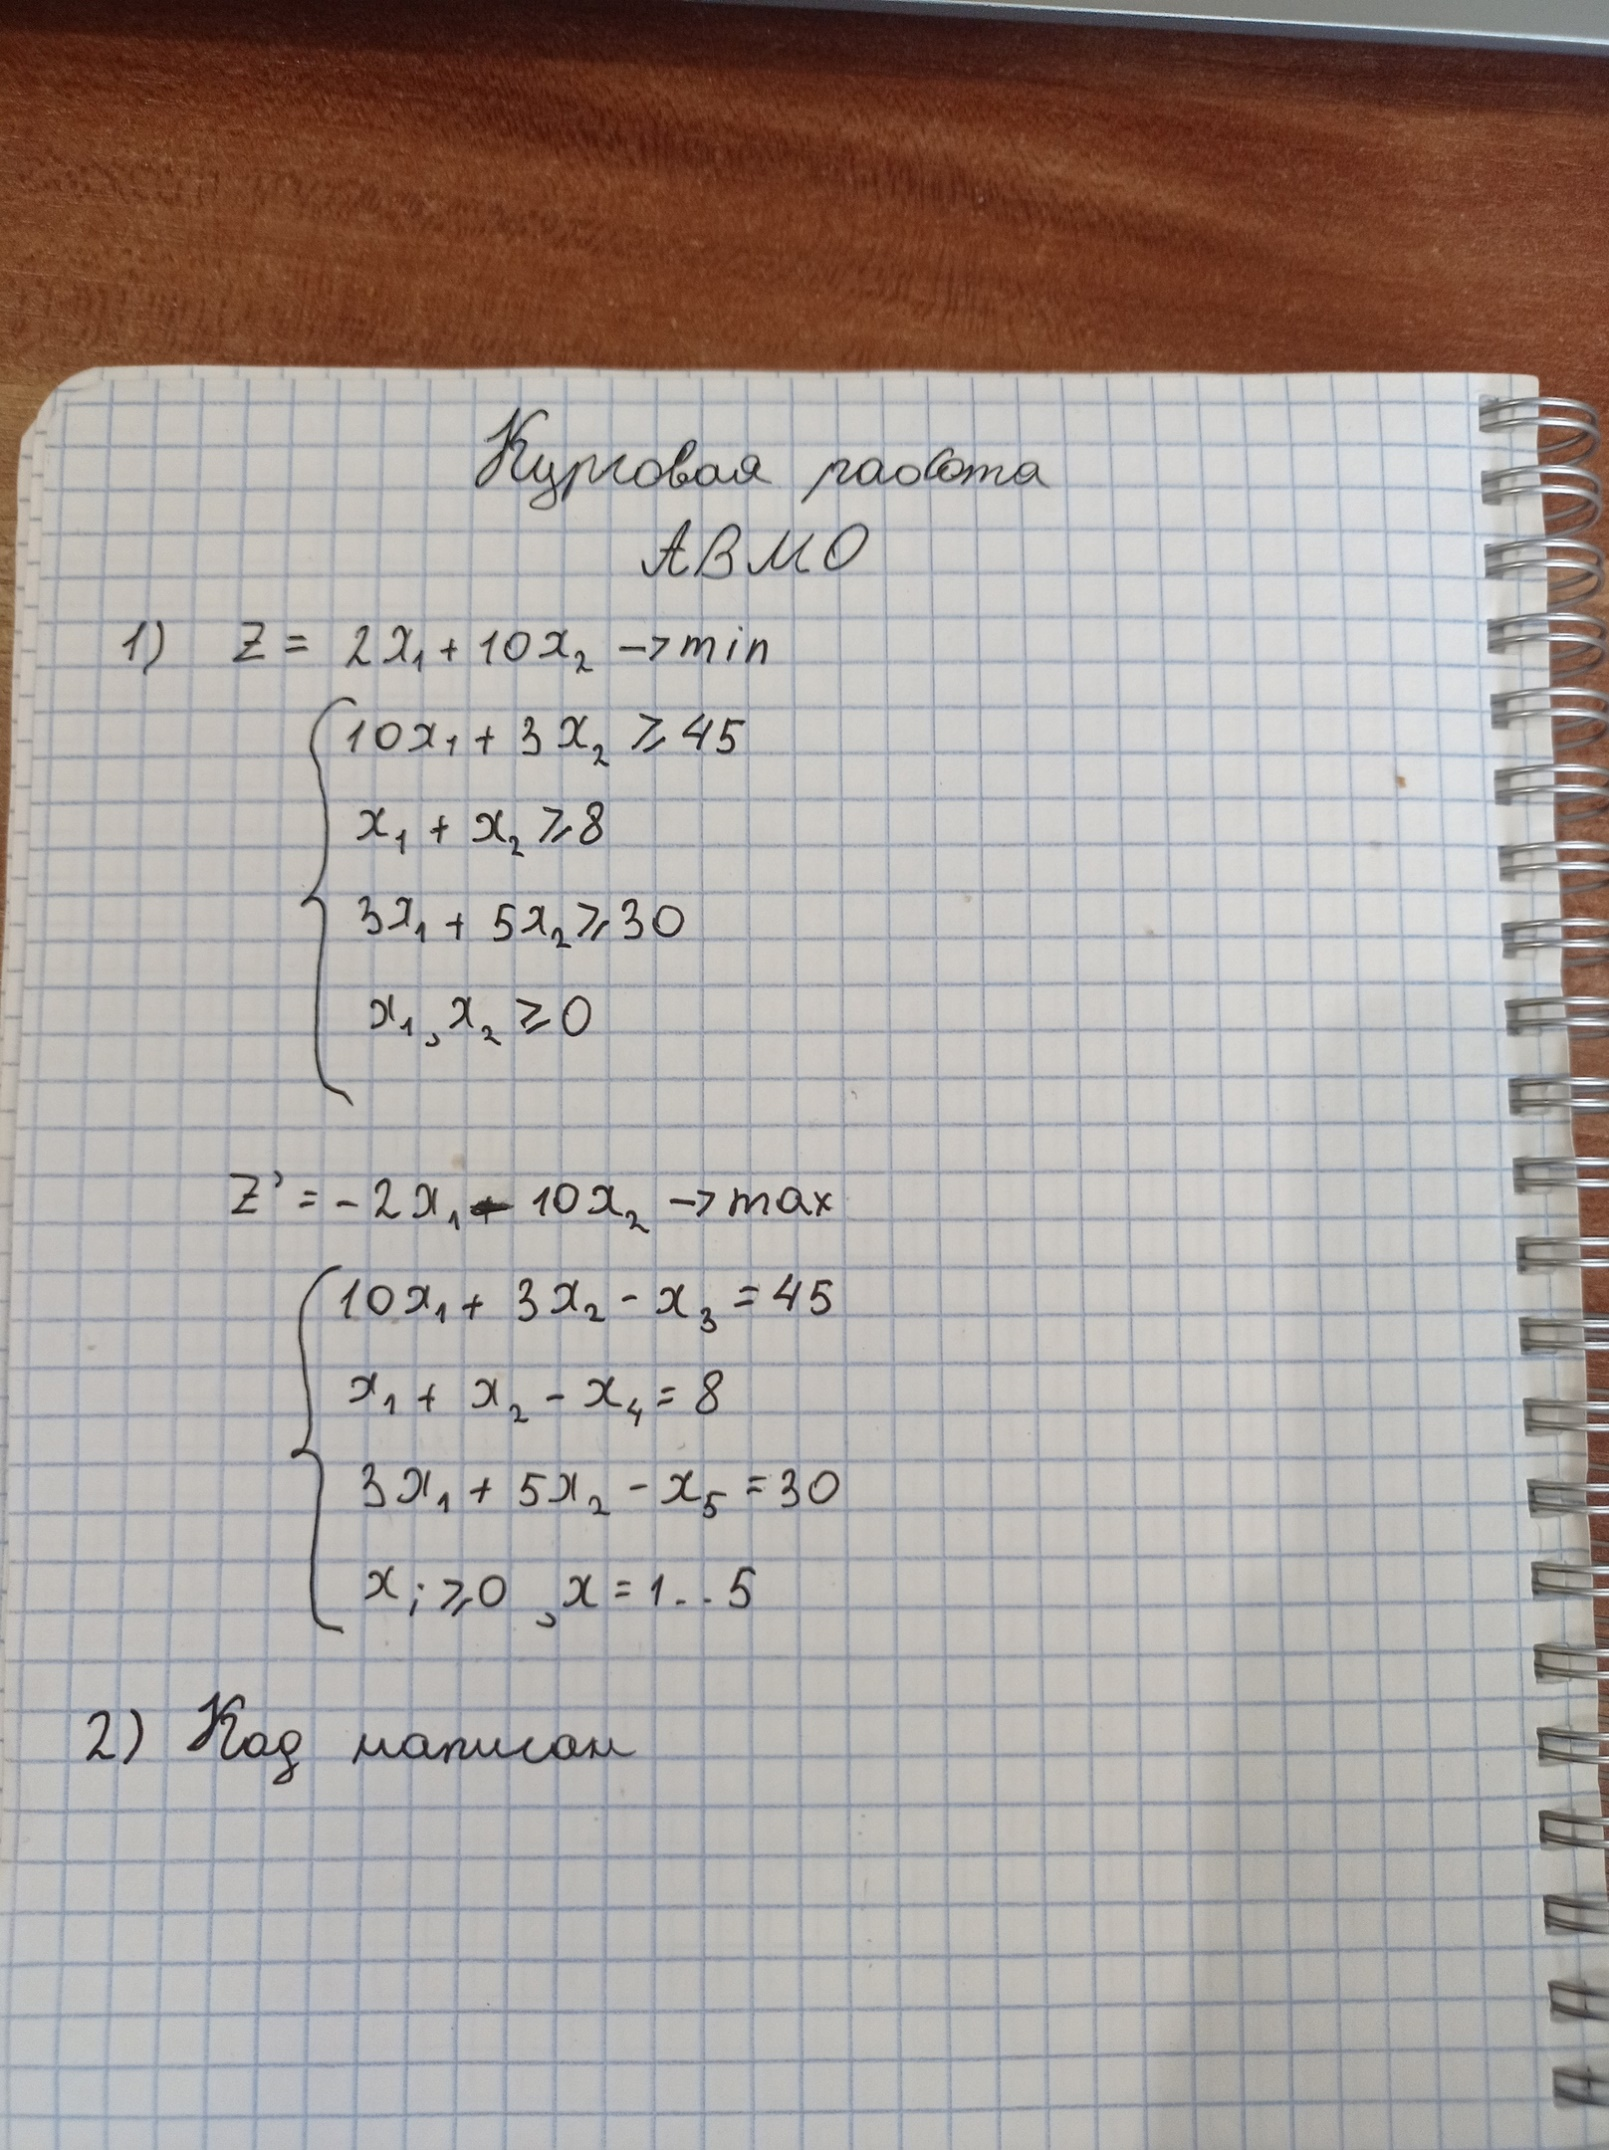 Курсовая работа
АВМО
1) Z = 2x₁ + 10x₂ → min
10x₁ + 3x₂ ⩾ 45
x₁ + x₂ ⩾ 8
3x₁ + 5x₂ ⩾ 30
x₁, x₂ ⩾ 0
Z' = -2x₁ - 10x₂ → max
10x₁ + 3x₂ - x₃ = 45
x₁ + x₂ - x₄ = 8
3x₁ + 5x₂ - x₅ = 30
xᵢ ⩾ 0, x = 1..5
2) Код написан